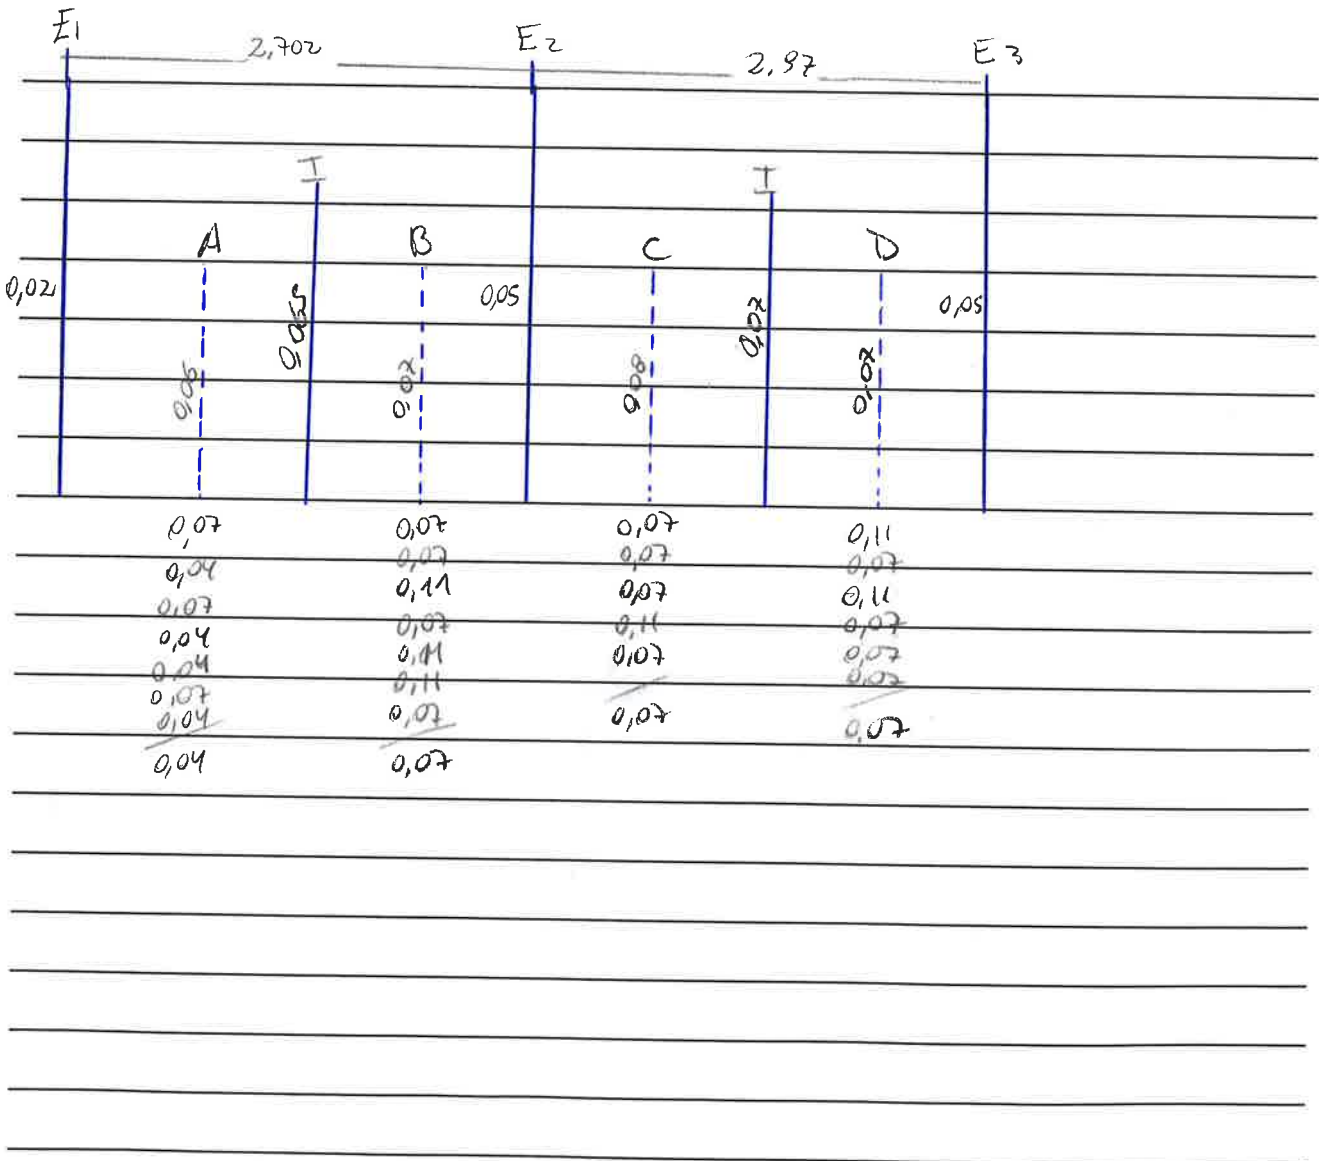 E1 2,702 E2 2,97 E3
I I
A B C D
0,02 0,065 0,05 0,07 0,05
0,06 0,07 0,08 0,07
0,07 0,07 0,07 0,11
0,04 0,07 0,07 0,07
0,07 0,11 0,07 0,11
0,04 0,07 0,11 0,07
0,04 0,11 0,07 0,07
0,07 0,11 0,07
0,04 0,07 0,07 0,07
0,04 0,07